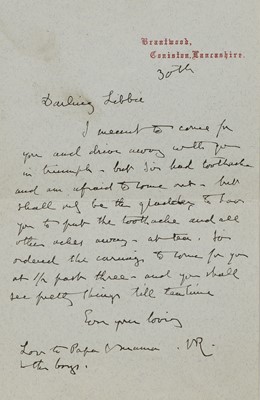 Brantwood,
Coniston, Lancashire.
30th
Darling Libbie
I meant to come for
you and drive away with you
in triumph - but I've had toothache
and am afraid to come out - but
shall only be the gladder to have
you to put the toothache and all
other aches away - at tea. I've
ordered the carriage to come for you
at 1/2 past three - and you shall
see pretty things till teatime
Ever your loving
JR.
Love to Papa & Mama
& the boys.